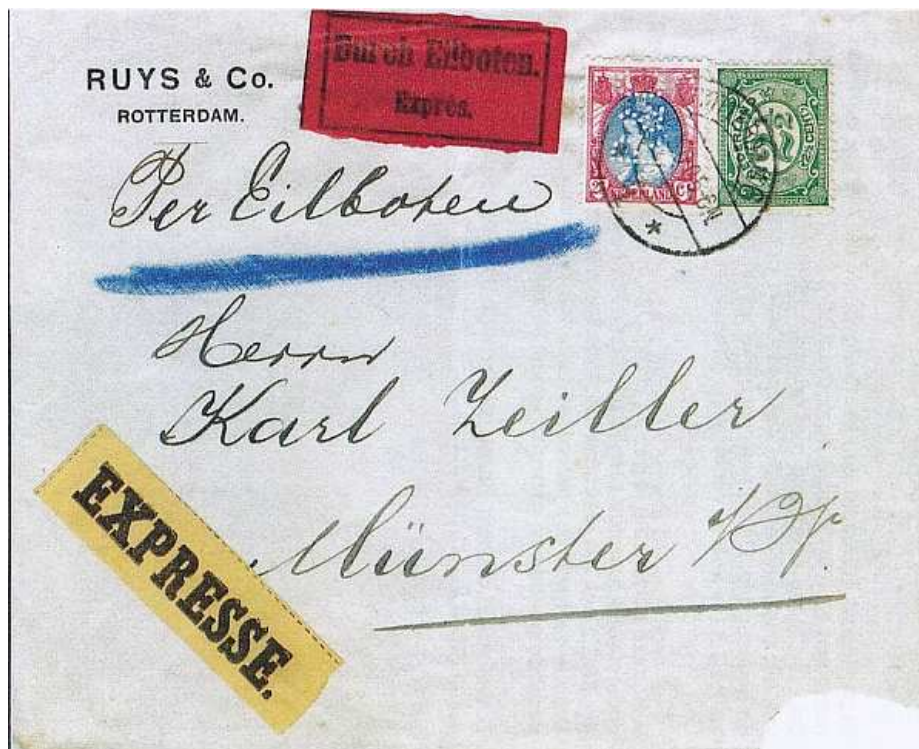 RUYS & Co.
ROTTERDAM.
Durch Eilboten.
Expres.
NEDERLAND
Per Eilboten
Herrn
Karl Zeiller
Münster i/W.
EXPRESSE.